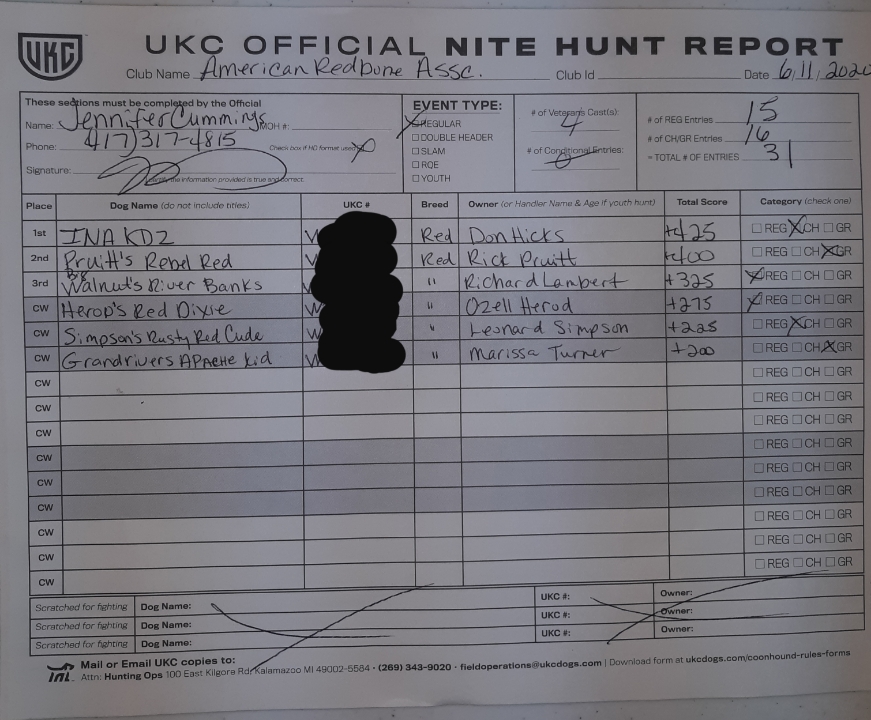 UKC
UKC OFFICIAL NITE HUNT REPORT
Club Name American Redbone Assc. Club Id Date 6/11/2020
These sections must be completed by the Official
Name: Jennifer Cummings MOH #:
Phone: 417)317-4815 Check box if HO format used
Signature: I certify the information provided is true and correct.
EVENT TYPE:
REGULAR
DOUBLE HEADER
SLAM
RQE
YOUTH
# of Veterans Cast(s): 4
# of Conditional Entries: 0
# of REG Entries 15
# of CH/GR Entries 16
= TOTAL # OF ENTRIES 31
Place Dog Name (do not include titles) UKC # Breed Owner (or Handler Name & Age if youth hunt) Total Score Category (check one)
1st INA KDZ Red Don Hicks +425 REG CH GR
2nd Pruitt's Rebel Red Red Rick Pruitt +400 REG CH GR
3rd Big Walnut's River Banks " Richard Lambert +325 REG CH GR
CW Herop's Red Dixie " Ozell Herod +275 REG CH GR
CW Simpson's Rusty Red Cude " Leonard Simpson +225 REG CH GR
CW Grandrivers APAcHe kid " Marissa Turner +200 REG CH GR
CW REG CH GR
CW REG CH GR
CW REG CH GR
CW REG CH GR
CW REG CH GR
CW REG CH GR
CW REG CH GR
CW REG CH GR
CW REG CH GR
Scratched for fighting Dog Name: UKC #: Owner:
Scratched for fighting Dog Name: UKC #: Owner:
Scratched for fighting Dog Name: UKC #: Owner:
Mail or Email UKC copies to:
Attn: Hunting Ops 100 East Kilgore Rd, Kalamazoo MI 49002-5584 • (269) 343-9020 • fieldoperations@ukcdogs.com | Download form at ukcdogs.com/coonhound-rules-forms